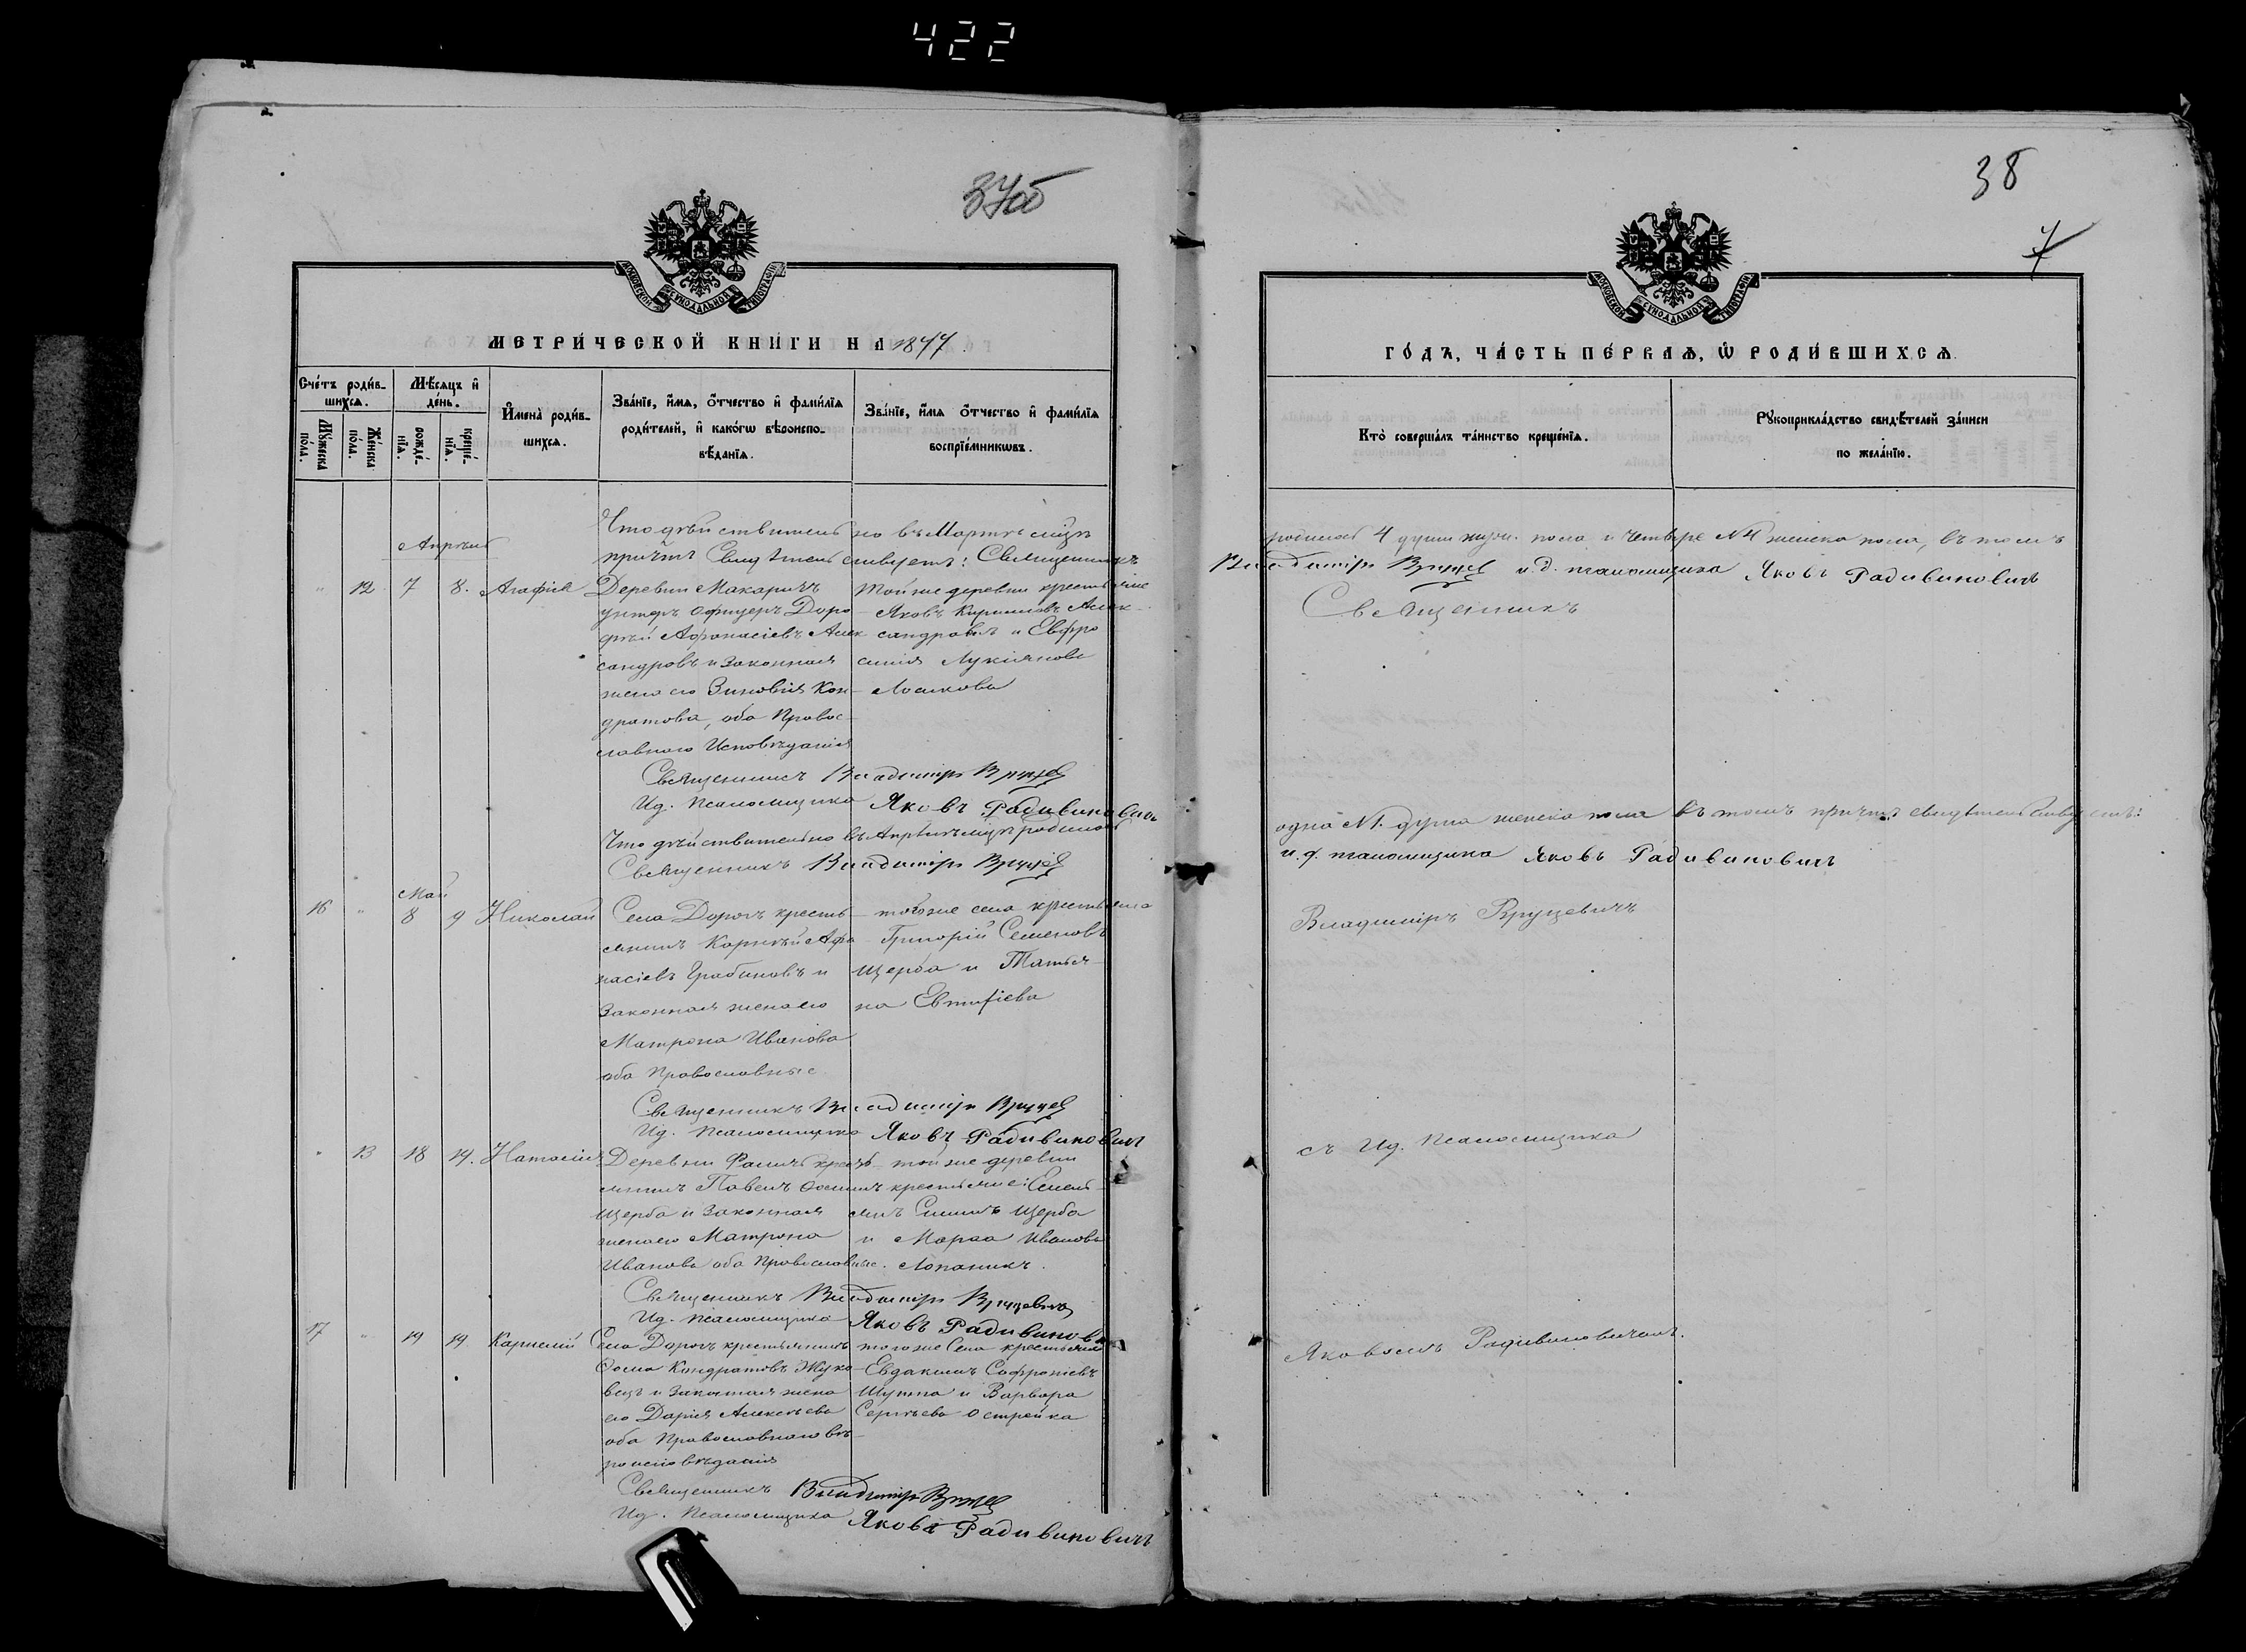 422
37об
МОСКОВСКОЙ СѴНОДАЛЬНОЙ ТИПОГРАФІИ
МЕТРИ́ЧЕСКОЙ КНИ́ГИ НА 1877.
Сче́тъ роди́в-
шихсѧ.
Мꙋ́жеска
по́ла.
Же́нска
по́ла.
Мѣ́сѧцъ и҆
де́нь.
рожде́-
нїѧ.
креще́-
нїѧ.
И҆мена̀ роди́в-
шихсѧ.
Зва́нїе, и҆́мѧ, ѻ҆́тчество и҆ фами́лїѧ
роди́телей, и҆ како́гѡ вѣ̀роиспо-
вѣ́данїѧ.
Зва́нїе, и҆́мѧ ѻ҆́тчество и҆ фами́лїѧ
воспрїе́мникѡвъ.
Что дѣйствительно въ Мартѣ мцѣ
причтъ Свидѣтельствуетъ: Священникъ
Апрѣль
" 12 7 8. Агафія
Деревни Макаричъ
унтеръ офицеръ Доро
фѣй Афонасіевъ Алек
сандровъ и Законная
жена его Зиновія Кон-
дратова, оба Правос-
лавного Исповѣданія
Тойже деревни крестьяне
Яковъ Кириловъ Алек-
сандровъ и Евфро
синія Лукіянова
Священникъ Владиміръ
И.д. Псаломщика Яковъ Радивиновичъ
Что дѣйствительно въ Апрѣлѣ мцѣ родилось
Священникъ Владиміръ
Май
16 " 8 9 Николай
Села Дорогъ кресть-
янинъ Корнѣй Афа
насіевъ Грабиновъ и
Законная жена его
Матрона Иванова
оба Православные
тогоже села крестьяне
Григорій Семеновъ
Щерба и Татья-
на Евтифіева
Священникъ Владиміръ
И.д. Псаломщика Яковъ Радивиновичъ
" 13 18 19. Наталія
Деревни Фаличъ кресть-
янинъ Павелъ Осиповъ
Щерба и Законная
жена его Матрона
Иванова оба Православные.
той же деревни
крестьяне: Емель-
янъ Щерба
и Марѳа Иванова
Лопаникъ.
Священникъ Владиміръ Вруцевичъ
И.д. псаломщика Яковъ Радивиновичъ
17 " 19 19 Карнелій
Села Дорогъ крестьянинъ
Ѳома Кондратовъ Жуко-
вецъ и Законная жена
его Дарія Алексѣева
оба Православного вѣ-
роисповѣданія
тогоже Села крестьяне
Евдакимъ Софроніевъ
Шупта и Варвара
Сергѣева Острейка
Священникъ Владиміръ
И.д. Псаломщика Яковъ Радивиновичъ
38
7
МОСКОВСКОЙ СѴНОДАЛЬНОЙ ТИПОГРАФІИ
ГО́ДЪ, ЧА́СТЬ ПЕ́РВАѦ, Ѽ РОДИ́ВШИХСѦ.
Кто̀ соверша́лъ та́инство креще́нїѧ.
Рꙋкоприкла́дство свидѣ́телей за́писи
по жела́нїю.
родилось 4 души муж. пола и четыре № 4 женска пола, въ томъ
Владиміръ и.д. псаломщика Яковъ Радивиновичъ
Священникъ
одна № 1. душа женска пола въ томъ причтъ свидѣтельствуетъ:
и.д. псаломщика Яковъ Радивиновичъ
Владиміръ Вруцевичъ
съ И.д. Псаломщика
Яковомъ Радивиновичомъ.